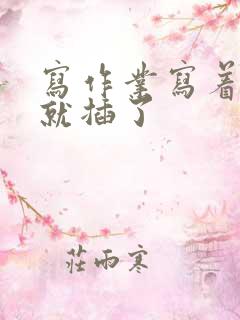 寫作業寫着
就插了
莊雨寒